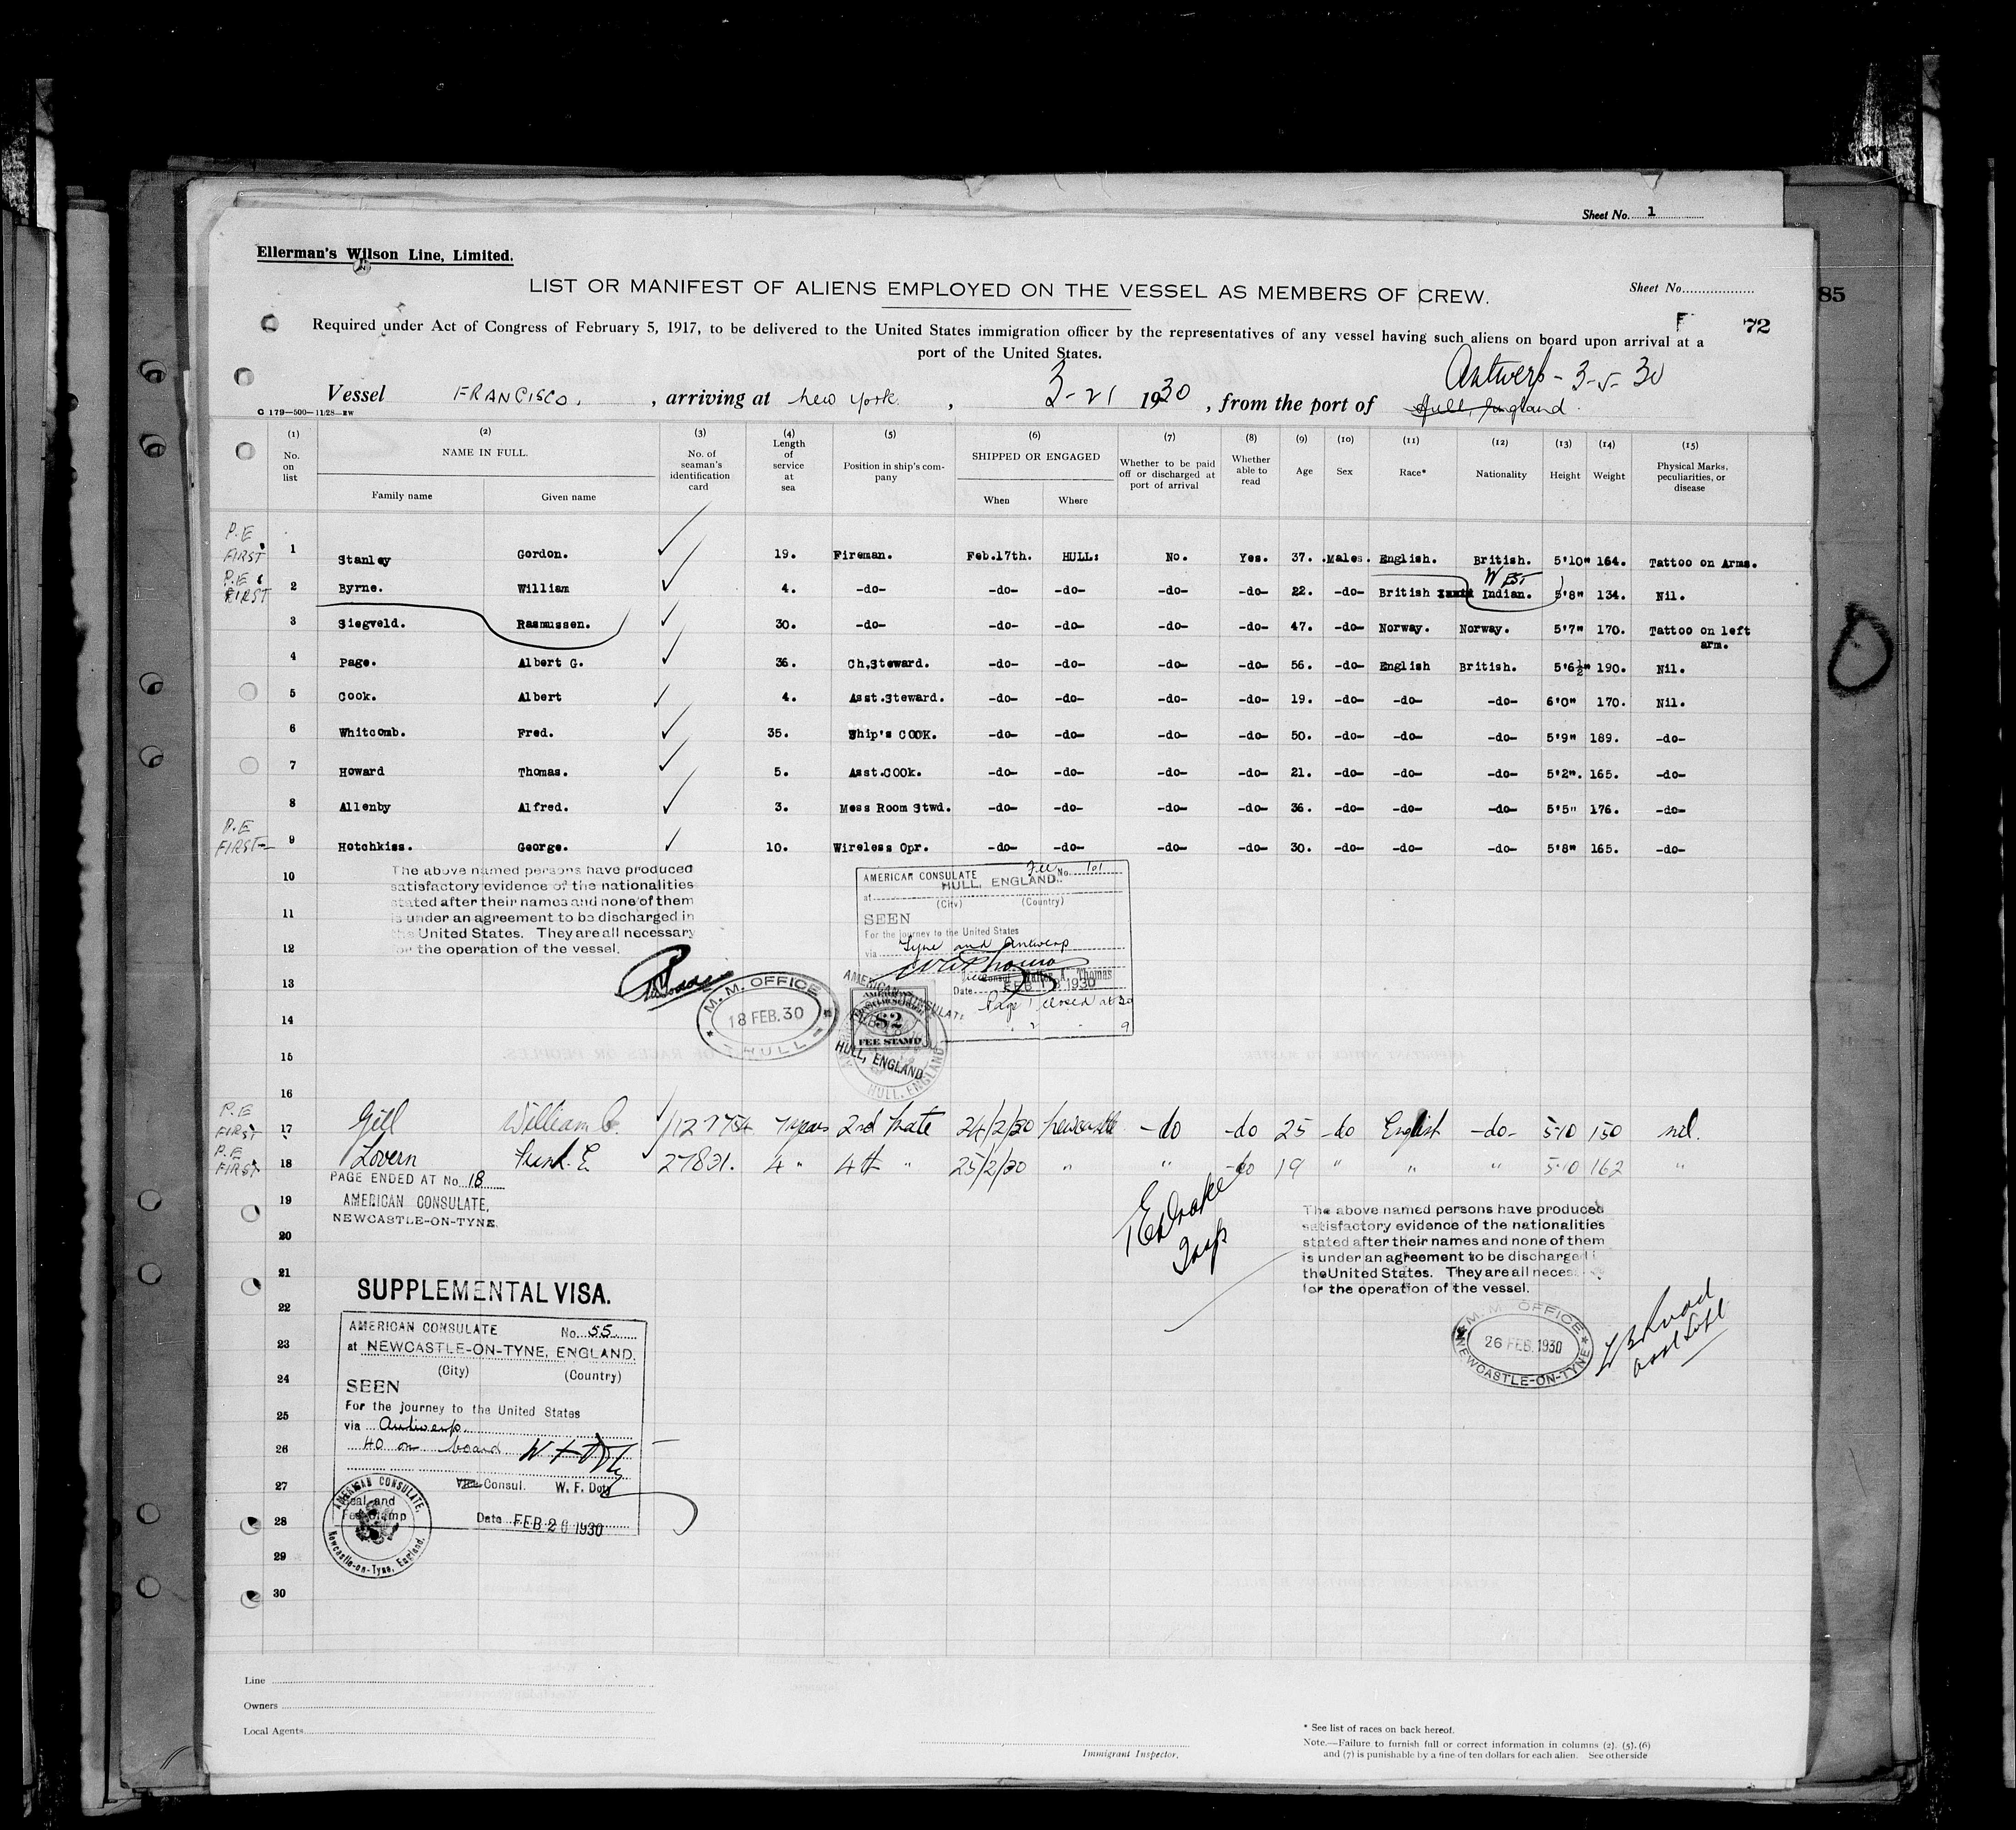 Sheet No. 1
Ellerman's Wilson Line, Limited.
LIST OR MANIFEST OF ALIENS EMPLOYED ON THE VESSEL AS MEMBERS OF CREW.
Sheet No.
85
Required under Act of Congress of February 5, 1917, to be delivered to the United States immigration officer by the representatives of any vessel having such aliens on board upon arrival at a
F 72
port of the United States.
Antwerp - 3-5-30
Vessel FRANCISCO, , arriving at New York , 3-21 1930 , from the port of Hull, England.
C 179—500—11/28—EW
(1) (2) (3) (4) (5) (6) (7) (8) (9) (10) (11) (12) (13) (14) (15)
No. on list NAME IN FULL. Family name Given name No. of seaman's identification card Length of service at sea Position in ship's company SHIPPED OR ENGAGED When Where Whether to be paid off or discharged at port of arrival Whether able to read Age Sex Race* Nationality Height Weight Physical Marks, peculiarities, or disease
P.E FIRST 1 Stanley Gordon. 19. Fireman. Feb.17th. HULL: No. Yes. 37. Males. English. British. 5'10" 164. Tattoo on Arms.
WEST
P.E FIRST 2 Byrne. William 4. -do- -do- -do- -do- -do- 22. -do- British Indian. 5'8" 134. Nil.
3 Siegveld. Rasmussen. 30. -do- -do- -do- -do- -do- 47. -do- Norway. Norway. 5'7" 170. Tattoo on left arm.
4 Page. Albert G. 36. Ch.Steward. -do- -do- -do- -do- 56. -do- English British. 5'6½" 190. Nil.
5 Cook. Albert 4. Asst.Steward. -do- -do- -do- -do- 19. -do- -do- -do- 6'0" 170. Nil.
6 Whitcomb. Fred. 35. Ship's COOK. -do- -do- -do- -do- 50. -do- -do- -do- 5'9" 189. -do-
7 Howard Thomas. 5. Asst.COOk. -do- -do- -do- -do- 21. -do- -do- -do- 5'2". 165. -do-
8 Allenby Alfred. 3. Mess Room Stwd. -do- -do- -do- -do- 36. -do- -do- -do- 5'5" 176. -do-
P.E FIRST 9 Hotchkiss. George. 10. Wireless Opr. -do- -do- -do- -do- 30. -do- -do- -do- 5'8" 165. -do-
10
11
12
13
14
15
16
The above named persons have produced
satisfactory evidence of the nationalities
stated after their names and none of them
is under an agreement to be discharged in
the United States. They are all necessary
for the operation of the vessel.
M. M. OFFICE
18 FEB. 30
HULL
AMERICAN CONSULATE No. 101
at HULL, ENGLAND.
(City) (Country)
SEEN
For the journey to the United States
via Tyne and Antwerp
Consul Walter A. Thomas
Date FEB 18 1930
Page 1 closed at 30
" 2 " 9
AMERICAN CONSULATE
$2
FEE STAMP
HULL, ENGLAND
HULL, ENGLAND
P.E FIRST 17 Gill William C. 127754 7 years 2nd Mate 24/2/30 Newcastle -do -do 25 -do English -do- 5-10 150 nil.
P.E FIRST 18 Lovern Frank. E. 27831. 4 " 4th " 25/2/30 " " -do 19 " " " 5-10 162 "
PAGE ENDED AT No. 18
AMERICAN CONSULATE,
NEWCASTLE-ON-TYNE.
19
20
21
22
23
24
25
26
27
28
29
30
Insp
The above named persons have produced
satisfactory evidence of the nationalities
stated after their names and none of them
is under an agreement to be discharged i
the United States. They are all neces
for the operation of the vessel.
M. M. OFFICE
26 FEB. 1930
NEWCASTLE-ON-TYNE
SUPPLEMENTAL VISA.
AMERICAN CONSULATE No. 55
at NEWCASTLE-ON-TYNE, ENGLAND.
(City) (Country)
SEEN
For the journey to the United States
via Antwerp.
40 on board
Vice Consul. W. F. Doty
Seal and
Fee Stamp
Date FEB 26 1930
AMERICAN CONSULATE,
Newcastle-on-Tyne, England.
Line
Owners
Local Agents
Immigrant Inspector.
* See list of races on back hereof.
Note.—Failure to furnish full or correct information in columns (2), (5), (6)
and (7) is punishable by a fine of ten dollars for each alien. See other side